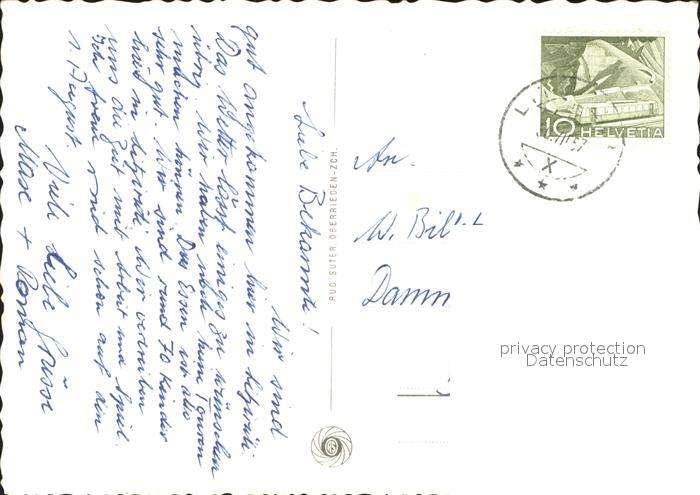 Liebe Bekannte!
Wir sind
gut angekommen hier in
Das Wetter lässt einiges zu wünschen
übrig. Wir haben noch keine Touren
machen können. Das Essen ist also
sehr gut. Wir sind rund 70 Kinder
hier in Wir vertreiben
uns die Zeit mit Arbeit und Spiel.
Ich freue mich schon auf den
1. August.
Viele liebe Grüsse
Max + Roman
RUD. SUTER, OBERRIEDEN-ZCH.
10 HELVETIA
X
An.
W. Bil
Damm
privacy protection
Datenschutz